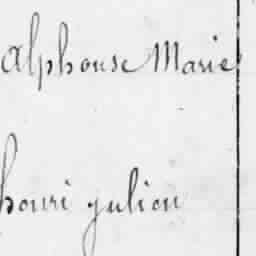 Alphonse Marie
henri julien